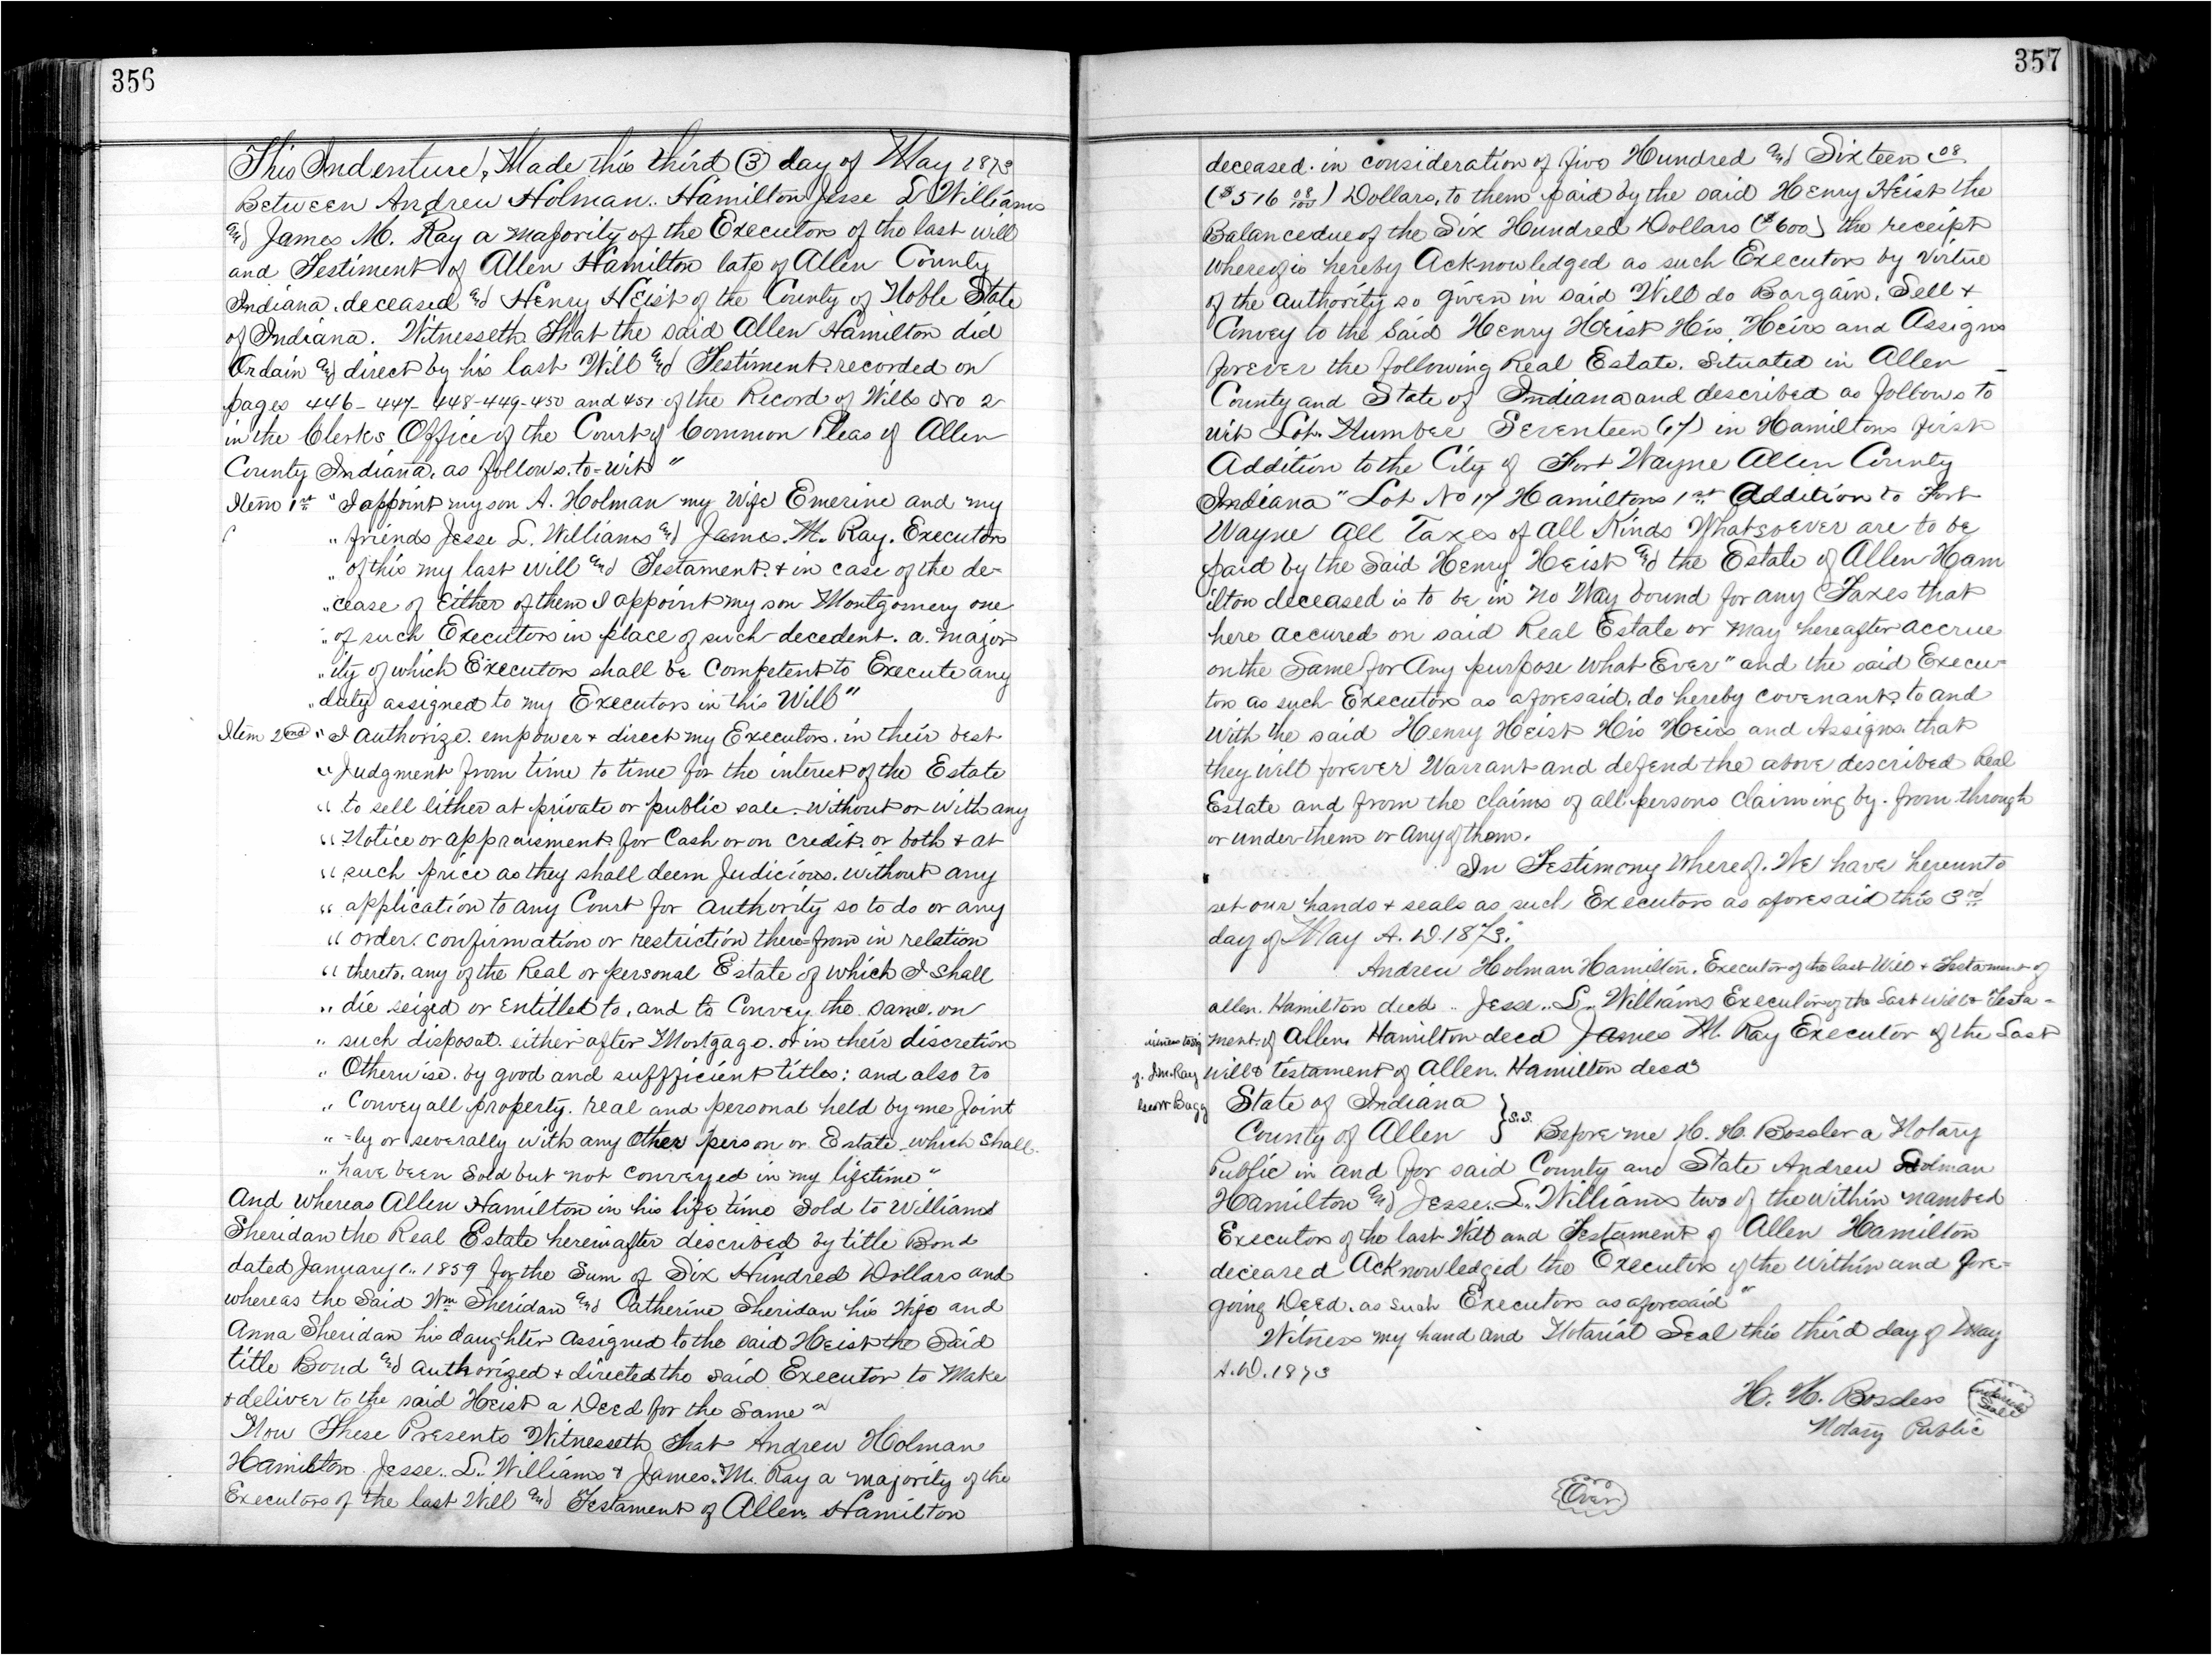 356
This Indenture, Made this third (3) day of May 1873
Between Andrew Holman. Hamilton Jesse L Williams
and James M. Ray a majority of the Executors of the last will
and Testiment of Allen Hamilton late of Allen County
Indiana. deceased and Henry Heist of the County of Noble State
of Indiana. Witnesseth That the said Allen Hamilton did
Ordain and direct by his last Will and Testiment recorded on
pages 446- 447- 448-449-450 and 451 of the Record of Wills No 2
in the Clerks Office of the Court of Common Pleas of Allen
County Indiana. as follows. to=wit "
Item 1st "I appoint my son A. Holman my Wife Emerine and my
" friends Jesse L. Williams and James. M. Ray. Executors
" of this my last will and Testament. + in case of the de-
" cease of Either of them I appoint my son Montgomery one
" of such Executors in place of such decedent. a. major
" ity of which Executors shall be Competent to Execute any
" duty assigned to my Executors in this Will"
Item 2nd " I authorize. empower + direct my Executors. in their best
" Judgment from time to time for the interest of the Estate
" to sell lither at private or public sale. without or with any
" Notice or appraisment for Cash or on credit. or both + at
" such price as they shall deem Judicious. without any
" application to any Court for authority so to do or any
" order. confirmation or restriction there=from in relation
" thereto. any of the Real or personal Estate of which I shall
" die seized or Entitled to, and to Convey the same. on
" such disposal. either after Mortgage. or in their discretion
" Otherwise. by good and suffficient titles: and also to
" Convey all property. real and personal held by me Joint
" =ly or severally with any Other person or Estate. which shall.
" have been Sold but not Conveyed in my lifetime"
And Whereas Allen Hamilton in his life time Sold to William
Sheridan the Real Estate hereinafter discribed by title Bond
dated January 1.. 1859 for the Sum of Six Hundred Dollars and
whereas the Said Wm Sheridan and Catherine Sheridan his Wife and
Anna Sheridan his daughter assigned to the said Heist the Said
title Bond and authorized + directed the said Executor to Make
+ deliver to the said Heist a Deed for the Same"
Now These Presents Witnesseth That Andrew Holman
Hamilton Jesse.. L.. Williams + James. M. Ray a majority of the
Executors of the last Will and Testament of Allen Hamilton
357
deceased. in consideration of five Hundred and Sixteen 08
($516 08/100) Dollars, to them paid by the said Henry Heist the
Balance due of the Six Hundred Dollars ($600) the receipt
whereof is hereby Acknowledged as such Executors by virtue
of the authority so given in said Will do Bargain. Sell +
Convey to the Said Henry Heist His, Heirs and Assigns
forever the following Real Estate. Situated in Allen
County and State of Indiana and described as follows to
wit Lot. Number Seventeen (17) in Hamiltons first
Addition to the City of Fort Wayne Allen County
Indiana "Lot No 17 Hamiltons 1st Addition to Fort
Wayne All Taxes of All Kinds Whatsoever are to be
paid by the Said Henry Heist and the Estate of Allen Ham
ilton deceased is to be in No Way bound for any Taxes that
here accured on said Real Estate or may hereafter accrue
on the Same for Any purpose What Ever" and the said Execu=
tors as such Executors as aforesaid. do hereby covenant. to and
with the said Henry Heist His Heirs and Assigns. that
they will forever Warrant and defend the above described Real
Estate and from the claims of all persons claiming by. from through
or under them or Any of them.
In Testimony Whereof. We have hereunto
set our hands + seals as such Executors as aforesaid this 3rd
day of May A. D. 1873.
Andrew Holman Hamilton. Executor of the last Will + Testament of
allen. Hamilton decd .. Jesse.. L.. Williams Executor of the Last Will + Testa=
ment. of Allen. Hamilton decd James M. Ray Executor of the Last
Will & testament of Allen. Hamilton decd
of. J.M. Ray
State of Indiana
County of Allen } S.S. Before me H. H. Bossler a Notary
Public in and for said County and State Andrew Holman
Hamilton and Jesse. L. Williams two of the within nambed
Executors of the last Will and Testament of Allen Hamilton
deceased Acknowledged the Executors of the within and fore=
going Deed. as such Executors as aforesaid"
Witness my hand and Notarial Seal this third day of May
A.D. 1873
H. H. Bossler
Notary Public
Notarial Seal
Over